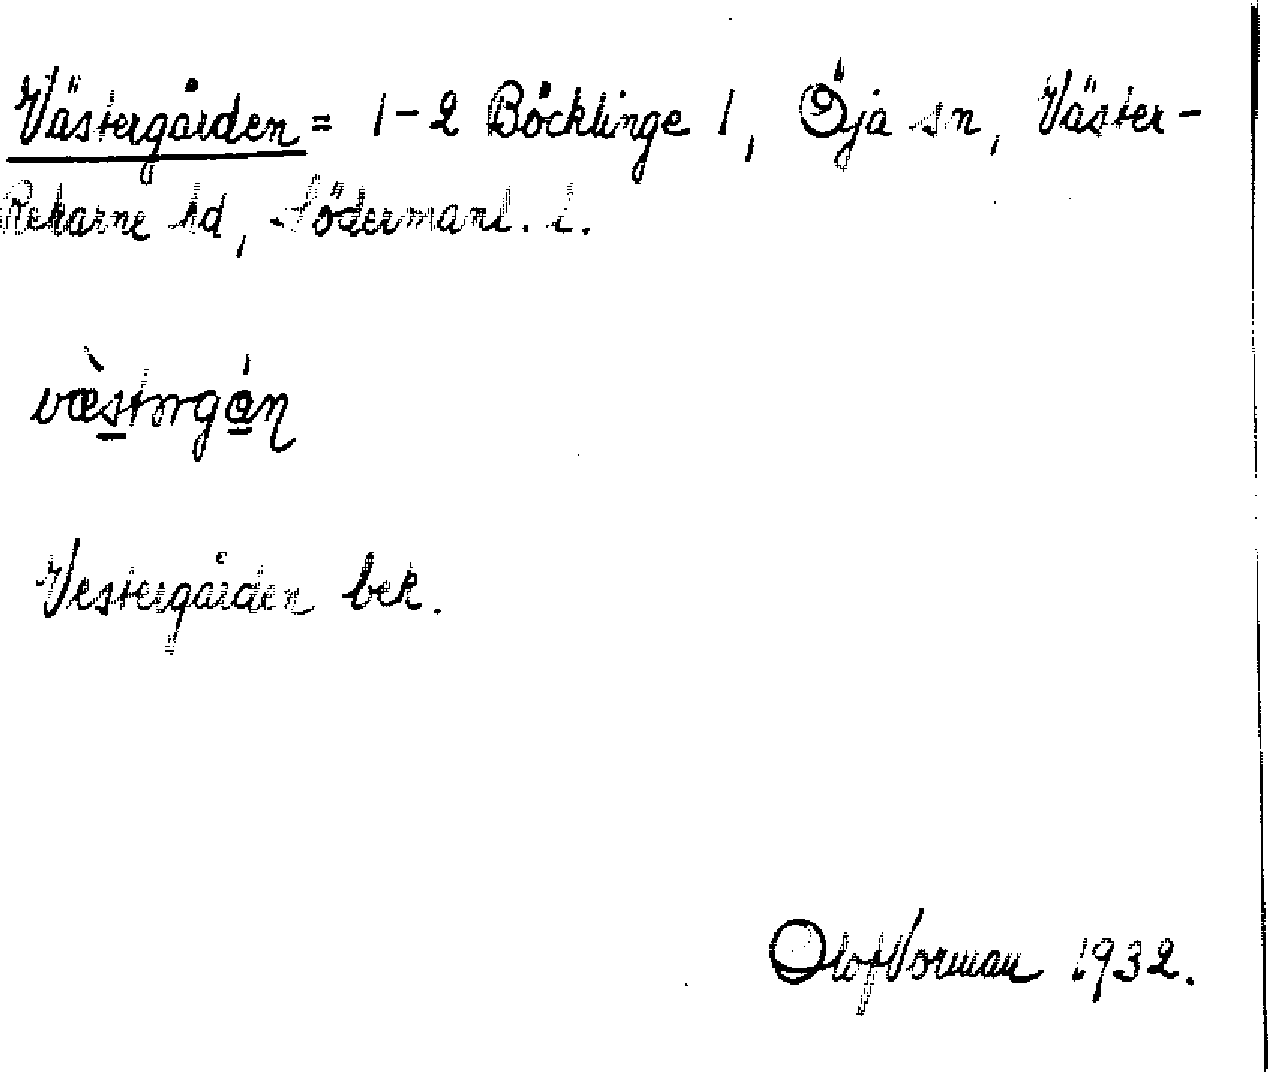 Västergården = 1-2 Böcklinge 1, Öja sn, Väster-
Rekarne hd, Södermanl. l.
Vestergården bek.
Olof Vorman 1932.